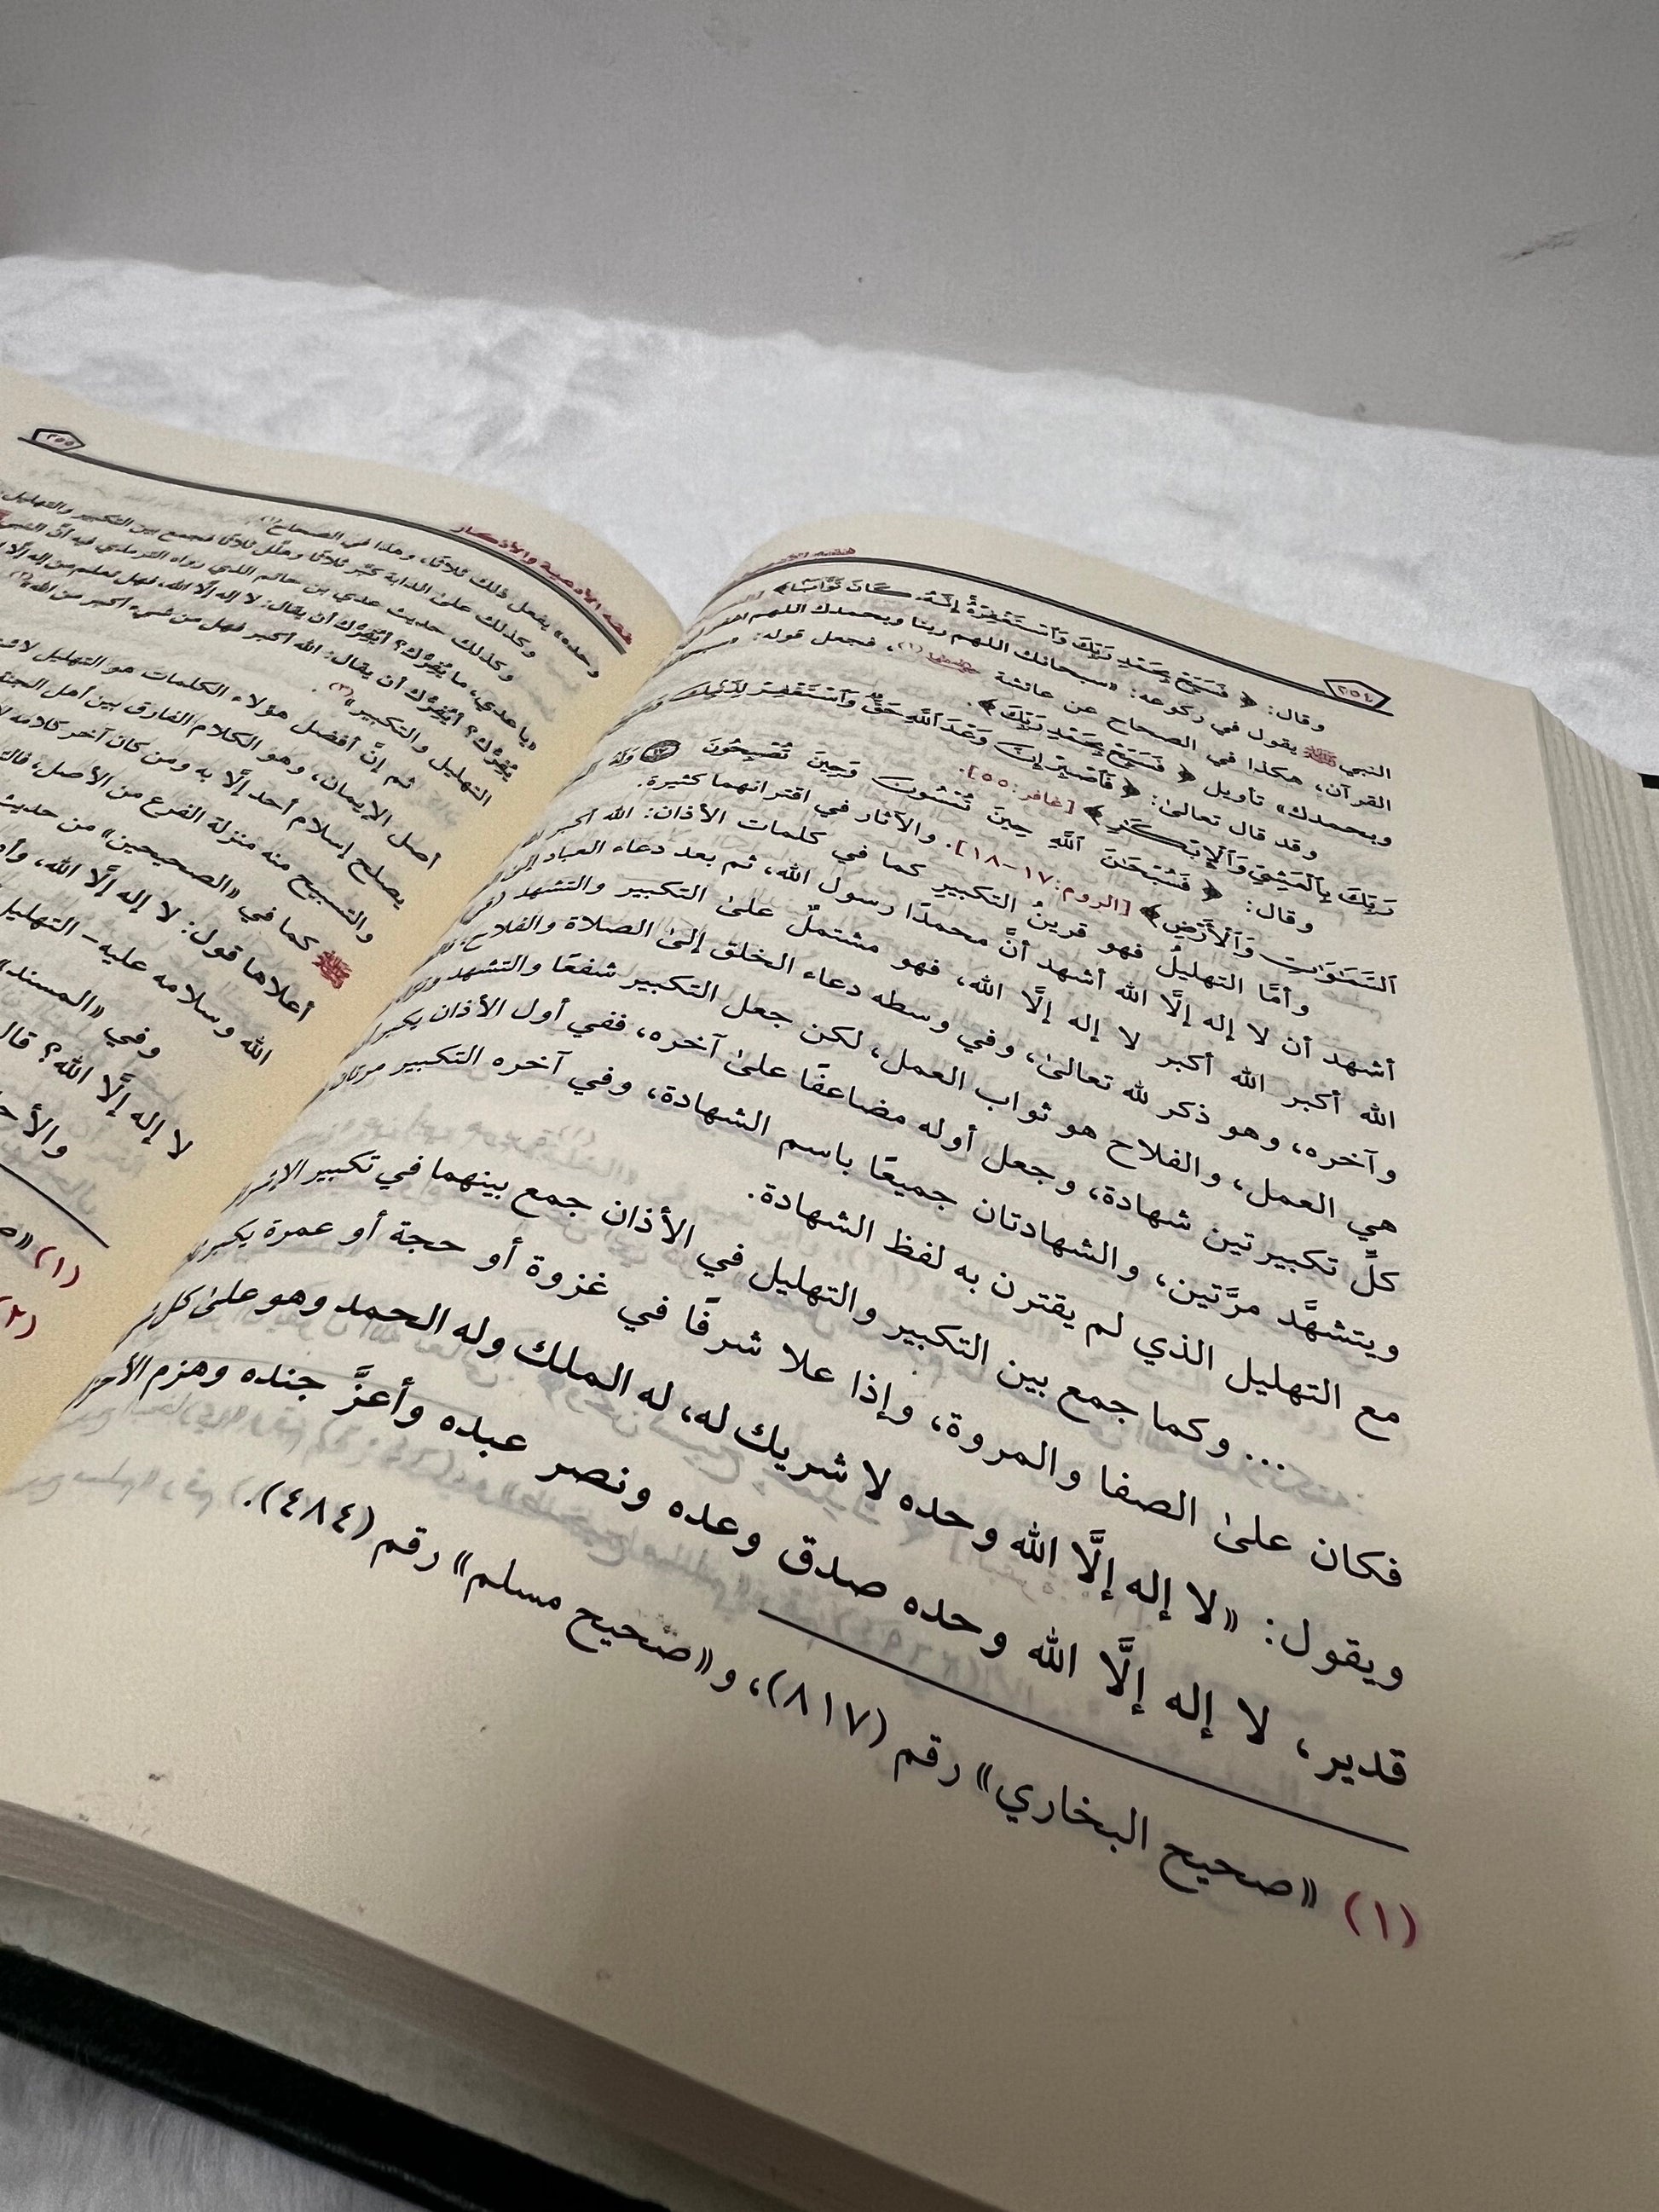 ٢٥٤
وقال: ﴿ فَسَبِّحْ بِحَمْدِ رَبِّكَ وَٱسْتَغْفِرْهُ إِنَّهُۥ كَانَ تَوَّابًۢا ﴾
النبي ﷺ يقول في ركوعه: «سبحانك اللهم ربنا وبحمدك اللهم اغفر لي
القرآن، هكذا في الصحاح عن عائشة رضي الله عنها (١)، فجعل قوله:
وبحمدك» تأويل ﴿ فَسَبِّحْ بِحَمْدِ رَبِّكَ ﴾.
وقد قال تعالىٰ: ﴿ فَٱصْبِرْ إِنَّ وَعْدَ ٱللَّهِ حَقٌّ وَٱسْتَغْفِرْ لِذَنۢبِكَ
رَبِّكَ بِٱلْعَشِيِّ وَٱلْإِبْكَٰرِ ﴾ [غافر: ٥٥].
وقال: ﴿ فَسُبْحَٰنَ ٱللَّهِ حِينَ تُمْسُونَ وَحِينَ تُصْبِحُونَ ١٧ وَلَهُ
ٱلسَّمَٰوَٰتِ وَٱلْأَرْضِ ﴾ [الروم: ١٧-١٨]. والآثار في اقترانهما كثيرة.
وأمَّا التهليلُ فهو قرينُ التكبير كما في كلمات الأذان: الله أكبر
أشهد أن لا إله إلَّا الله أشهد أنَّ محمدًا رسول الله، ثم بعد دعاء العباد
الله أكبر الله أكبر لا إله إلَّا الله، فهو مشتملٌ علىٰ التكبير والتشهد
وآخره، وهو ذكر لله تعالىٰ، وفي وسطه دعاء الخلق إلىٰ الصلاة والفلاح،
هي العمل، والفلاح هو ثواب العمل، لكن جعل التكبير شفعًا والتشهد
كلَّ تكبيرتين شهادة، وجعل أوله مضاعفًا علىٰ آخره، ففي أول الأذان يكبر
ويتشهَّد مرَّتين، والشهادتان جميعًا باسم الشهادة، وفي آخره التكبير مرتان
مع التهليل الذي لم يقترن به لفظ الشهادة.
... وكما جمع بين التكبير والتهليل في الأذان جمع بينهما في تكبير
فكان علىٰ الصفا والمروة، وإذا علا شرفًا في غزوة أو حجة أو عمرة يكبر
ويقول: «لا إله إلَّا الله وحده لا شريك له، له الملك وله الحمد وهو علىٰ كل
قدير، لا إله إلَّا الله وحده صدق وعده ونصر عبده وأعزَّ جنده وهزم
(١) «صحيح البخاري» رقم (٨١٧)، و«صحيح مسلم» رقم (٤٨٤).
فقه الأدعية والأذكار
٢٥٥
وحده» يفعل ذلك ثلاثًا، وهذا في الصحاح(١).
وكذلك علىٰ الدابة كبَّر ثلاثًا وهلَّل ثلاثًا فجمع بين التكبير والتهليل
وكذلك حديث عدي بن حاتم الذي رواه الترمذي فيه أنَّ النبي
«يا عدي، ما يُفِرُّك؟ أيُفِرُّك أن يقال: لا إله إلَّا الله، فهل تعلم من إله إلَّا
يُفِرُّك؟ أيُفِرُّك أن يقال: الله أكبر فهل من شيء أكبر من الله»(٢)
التهليل والتكبير»(٣).
ثم إنَّ أفضل هؤلاء الكلمات هو التهليل
أصل الإيمان، وهو الكلام الفارق بين أهل الجنة
يصلح إسلام أحد إلَّا به ومن كان آخر كلامه
والتسبيح منه منزلة الفرع من الأصل،
ﷺ كما في «الصحيحين» من حديث
أعلاها قول: لا إله إلَّا الله،
الله وسلامه عليه- التهليل
وفي «المسند»
لا إله إلَّا الله؟ قال
(١)
(٢)